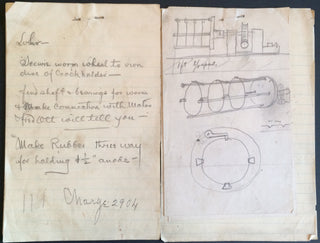 Lohr—
Secure worm wheel to iron
disc of Crock holder—
find shaft & bearings for worm
Make connection with Motor
Ott will tell you—
Make Rubber three way
for holding 4½" anode—
Charge 2904